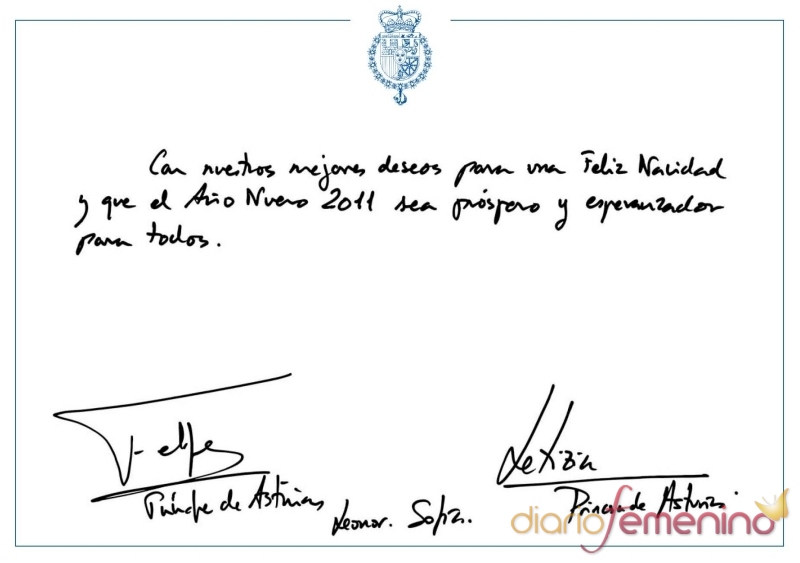 Con nuestros mejores deseos para una Feliz Navidad
y que el Año Nuevo 2011 sea próspero y esperanzador
para todos.
Felipe
Letizia
Príncipe de Asturias
Princesa de Asturias
Leonor. Sofía.
diariofemenino